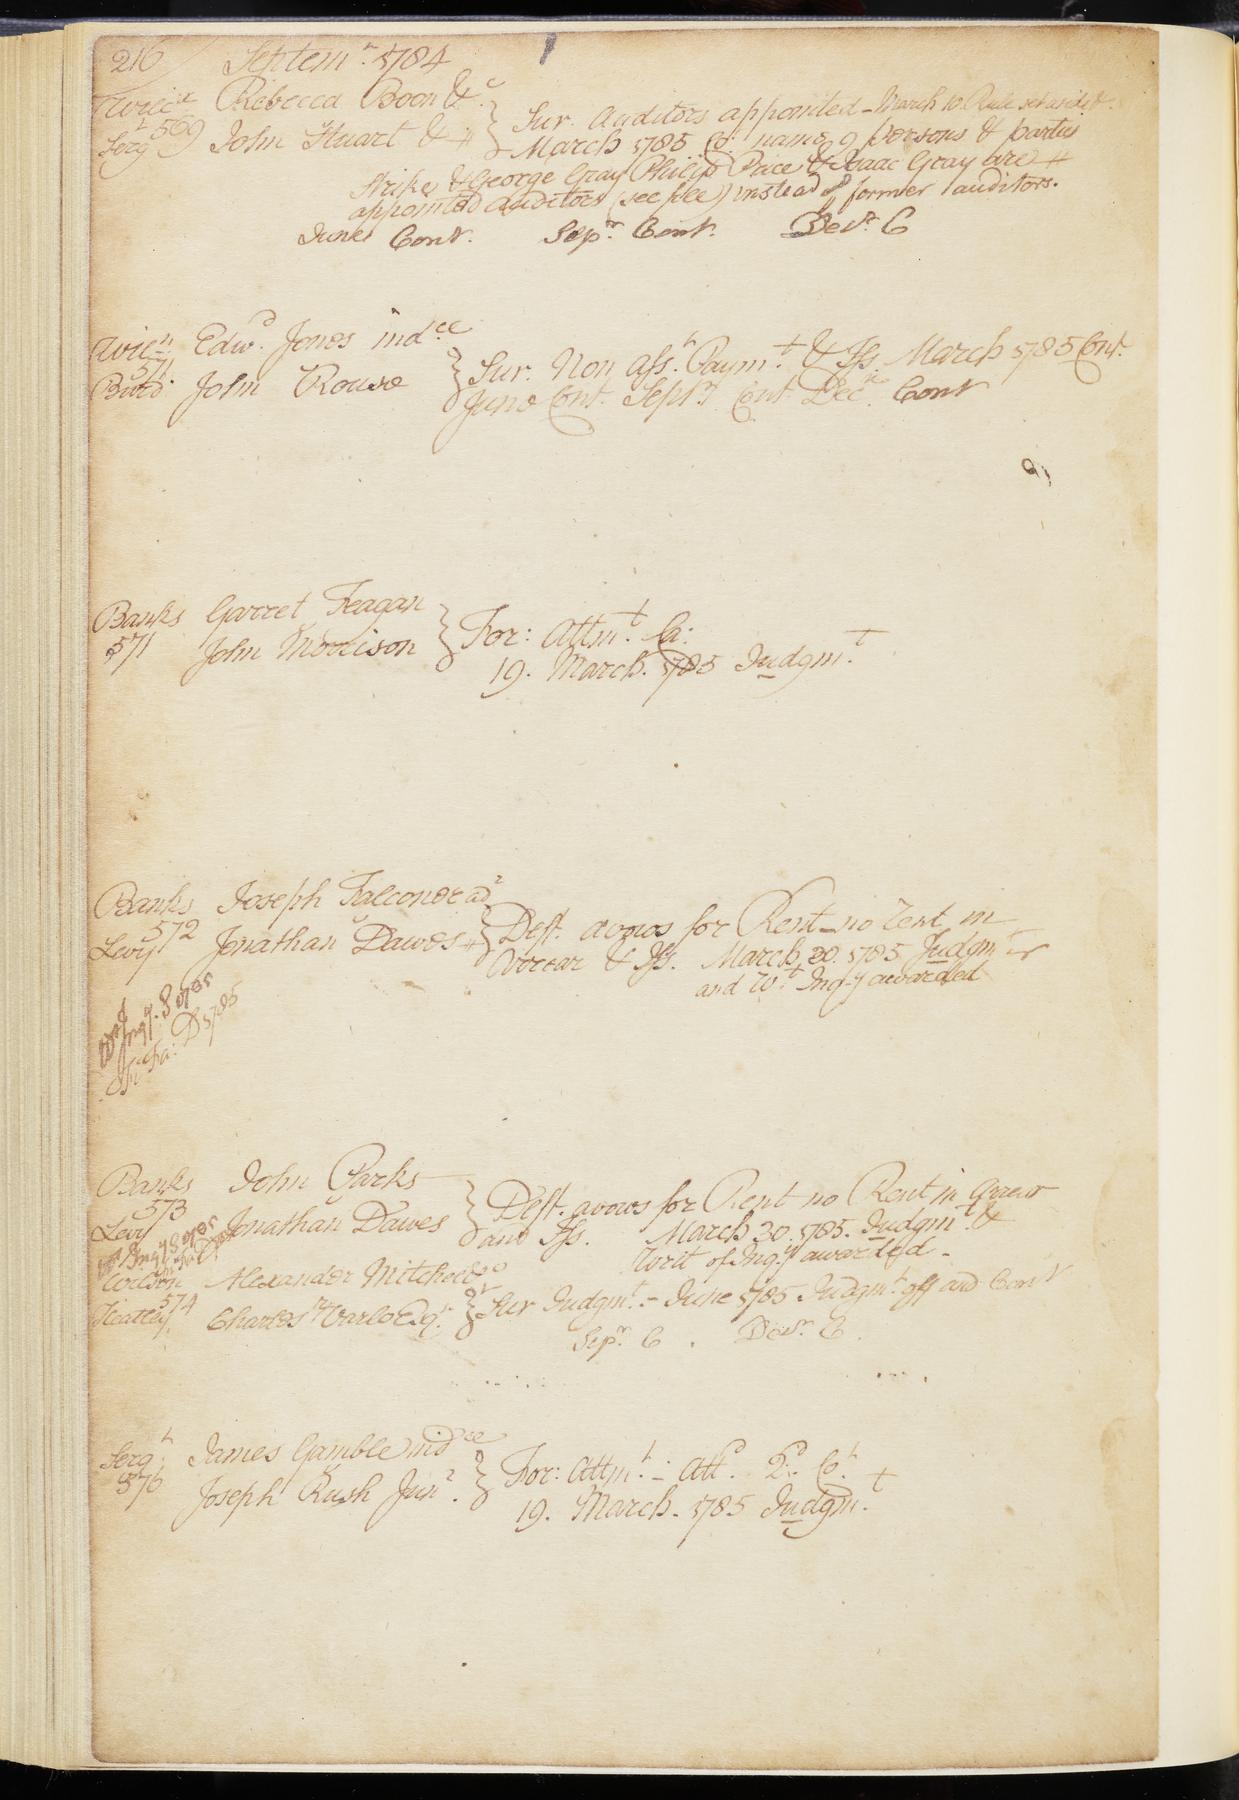 216 Septem.r 1784
Wilc.x Rebecca Boon &.c
Serg.t 569 John Stuart & # } Sur. Auditors appointed - March 10. Rule set aside &.
March 1785 C.o name 9 persons & parties
strike & George Gray Philip Price & Isaac Gray are #
appointed auditors (see file) instead of former auditors.
June Cont. Sep.r Cont. Dec.r C
Edw.d Jones ind.ce
571
John Rouse } Sur. Non Ass.t Paym.t & Iss. March 1785 Cont.
June Cont. Sept.r Cont. Dec.r Cont
Banks Garret Feagan
571 John Morrison } For: Attm.t Ca:
19. March. 1785 Judgm.t
Banks Joseph Falconer ad.r
572
Levy Jonathan Dawes # } Deft. avows for Rent no Rent in
Arrear & Iss. March 30. 1785 Judgm.t
and W.t Inq.y awarded
Writ
Inq.y. S 1785
D 1785
Banks John Parks
573
Levy Jonathan Dawes } Deft. avows for Rent no Rent in Arrear
and Iss. March 30. 1785. Judgm.t &
Writ of Inq.y awarded -
Inq.y S 1785
Wilson Alexander Mitchell
Heatley 574 Charles Varlo Esq.r } Sur Judgm.t - June 1785. Judgm.t off and Cont
Sep.r C. Dec.r C.
Serg.t James Gamble ind.ce
576 Joseph Rush Jun.r } For: Attm.t - Att. 2.d C.t
19. March. 1785 Judgm.t